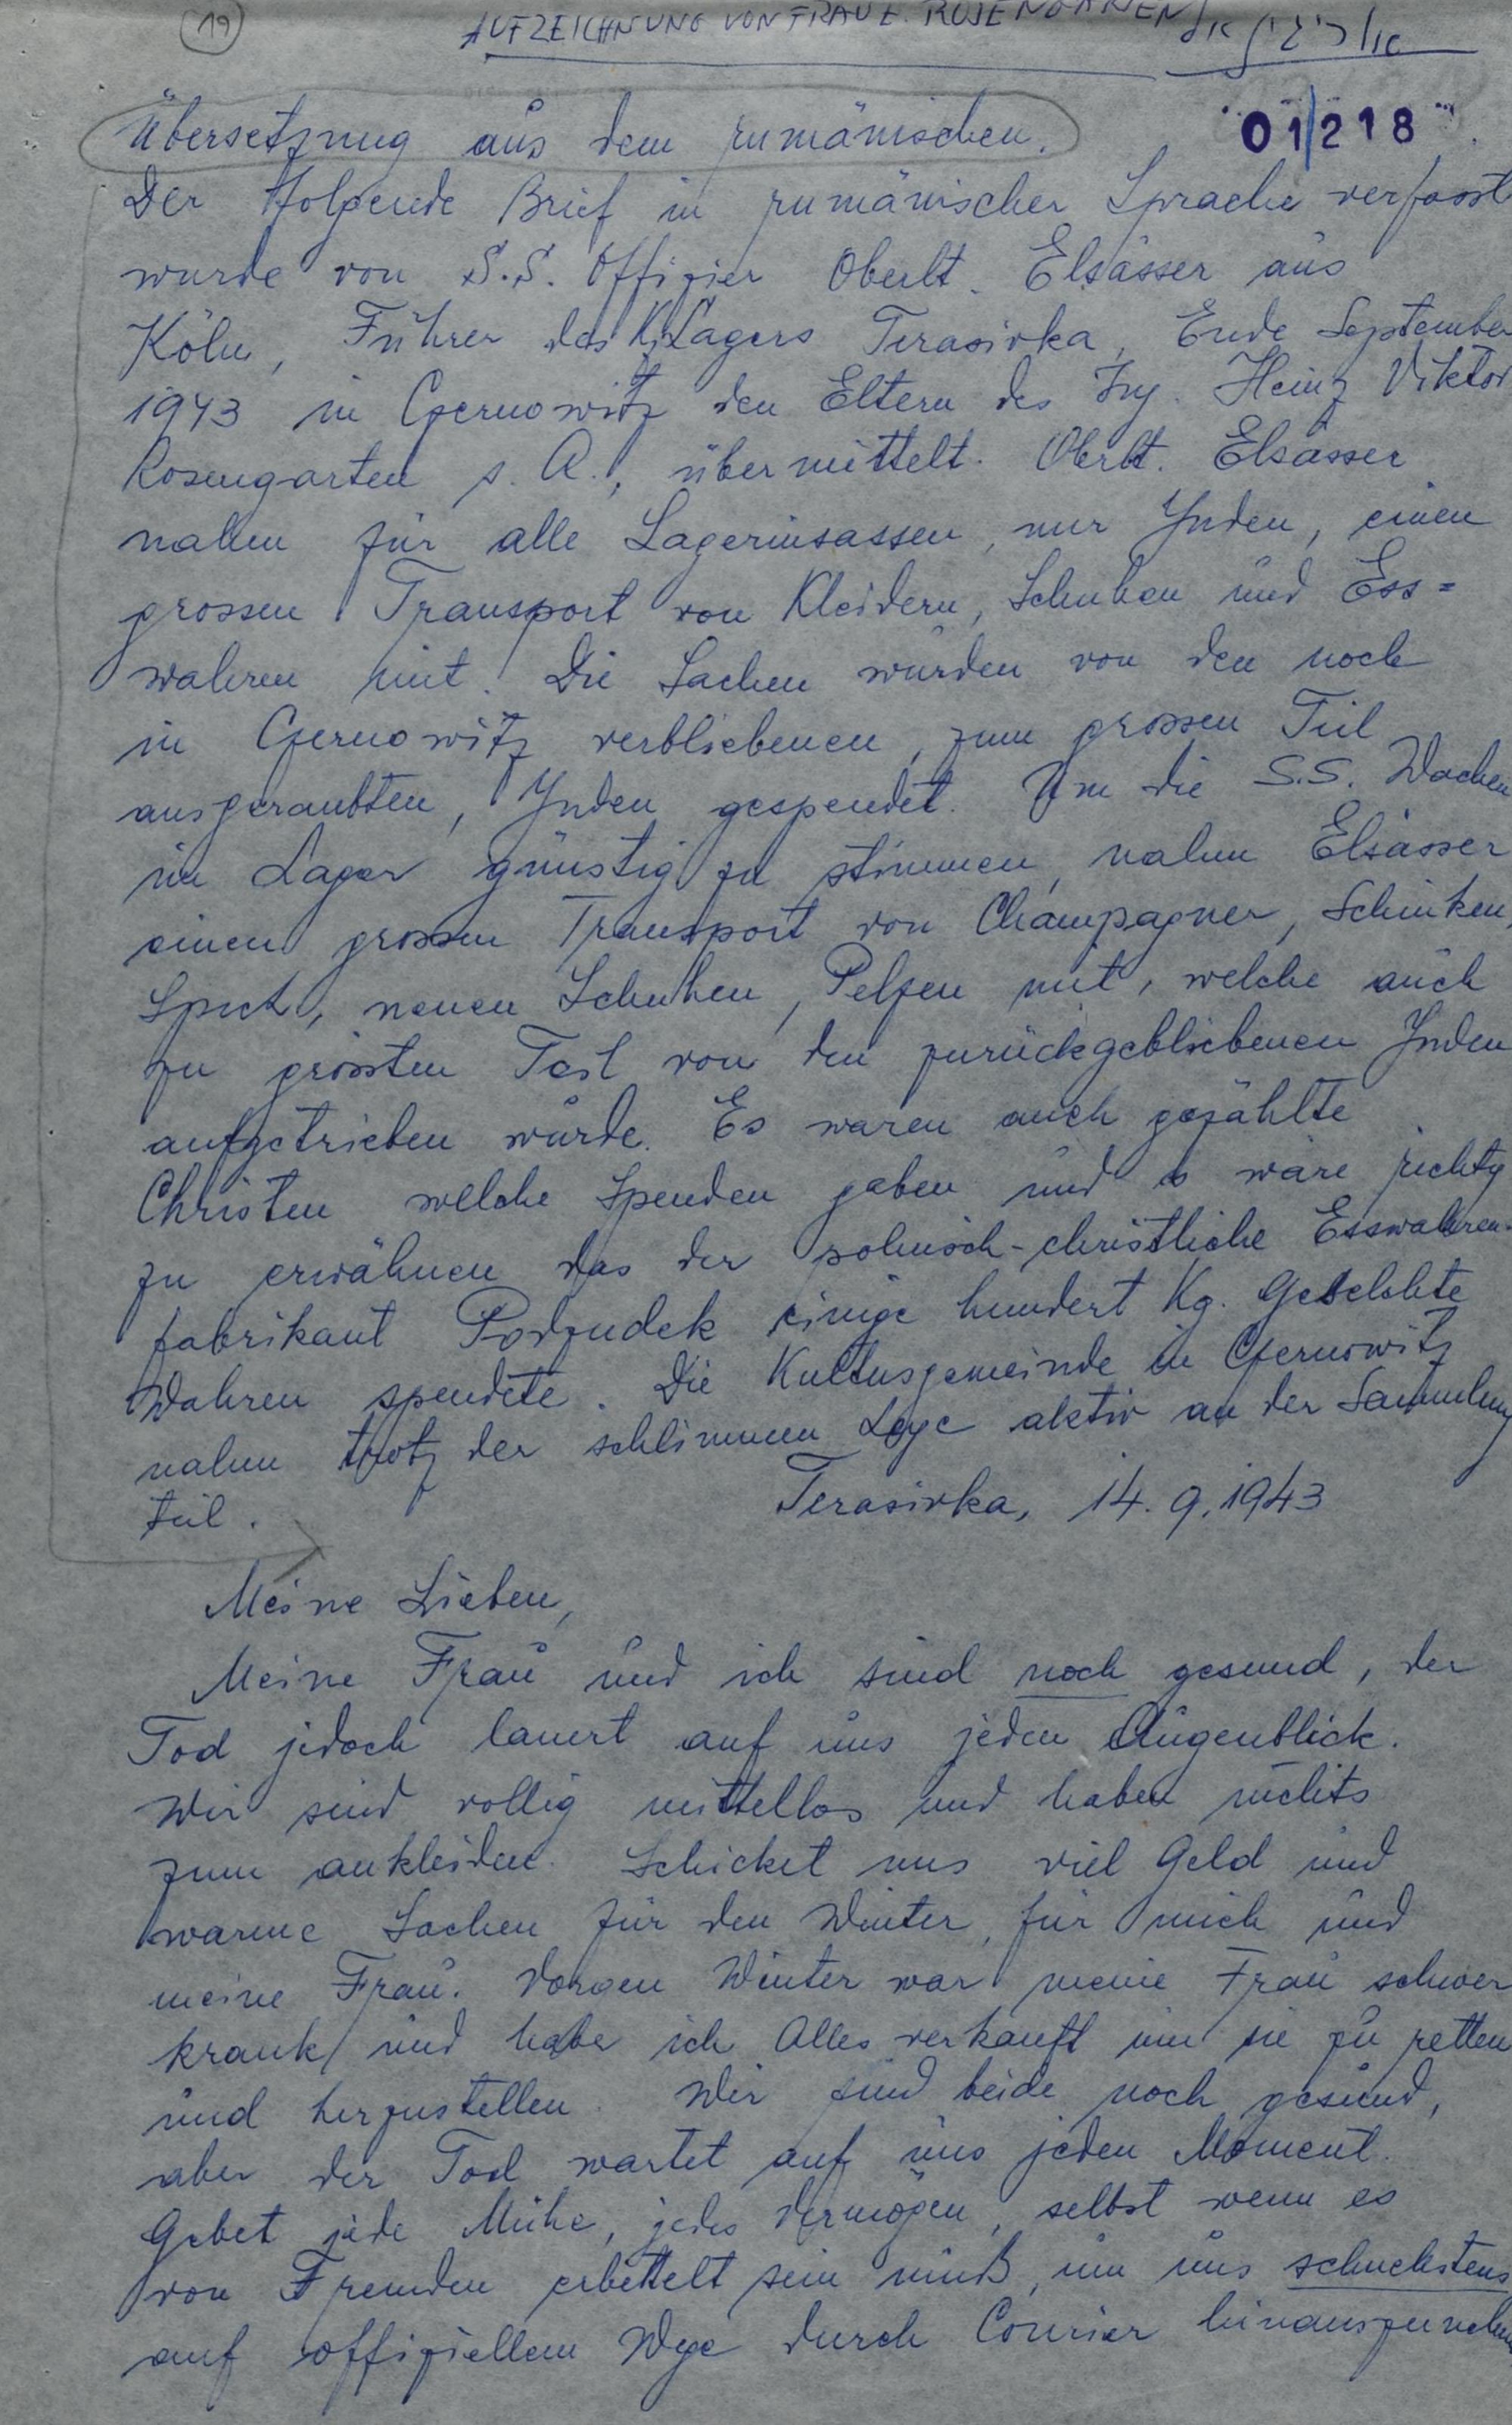 19
AUFZEICHNUNG VON FRAU E. ROSENGARTEN
01218
Übersetzung aus dem rumänischen.
Der folgende Brief in rumänischer Sprache verfasst
wurde von S.S. Offizier Oberlt. Elsässer aus
Köln, Führer des K.Lagers Terasivka, Ende September
1943 in Czernowitz den Eltern des Ing. Heinz Viktor
Rosengarten s. A., übermittelt. Oberlt. Elsässer
nahm für alle Lagerinsassen, nur Juden, einen
grossen Transport von Kleidern, Schuhen und Ess=
wahren mit. Die Sachen wurden von den noch
in Czernowitz verbliebenen, zum grossen Teil
ausgeraubten, Juden gespendet. Um die S.S. Wachen
im Lager günstig zu stimmen, nahm Elsässer
einen grossen Transport von Champagner, Schinken,
Speck, neuen Schuhen, Pelzen mit, welche auch
zu grössten Teil von den zurückgebliebenen Juden
aufgetrieben wurde. Es waren auch gezählte
Christen welche Spenden gaben und es wäre richtig
zu erwähnen das der polnisch-christliche Esswahren-
fabrikant Podzudek einige hundert Kg. Geselchte
Wahren spendete. Die Kultusgemeinde in Czernowitz
nahm trotz der schlimmen Lage aktiv an der Sammlung
teil.
Terasivka, 14.9.1943
Meine Lieben,
Meine Frau und ich sind noch gesund, der
Tod jedoch lauert auf uns jeden Augenblick.
Wir sind vollig mittellos und haben nichts
zum ankleiden. Schicket uns viel Geld und
warme Sachen für den Winter, für mich und
meine Frau. Vorgen Winter war meine Frau schwer
krank und habe ich Alles verkauft um sie zu retten
und herzustellen. Wir sind beide noch gesund,
aber der Tod wartet auf uns jeden Moment.
Gebet jede Mühe, jedes Vermögen, selbst wenn es
von Fremden erbettelt sein muß, um uns schnellstens
auf offiziellem Wege durch Courier